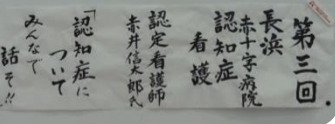 第三回
長浜
赤十字病院
認知症
看護
認定看護師
赤井信太郎氏
「認知症に
ついて
みんなで
話そ!!